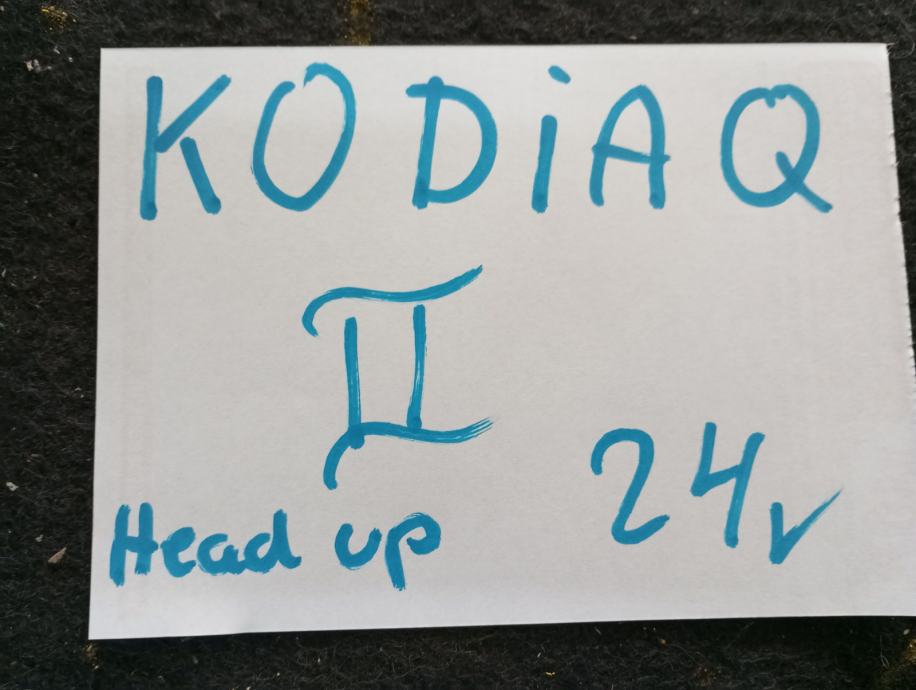 KODiAQ
II
24v
Head up